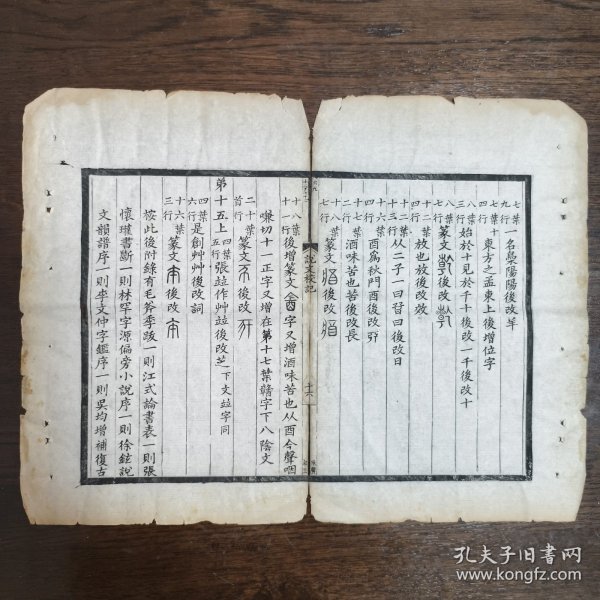 七葉九行 一名梟陽陽後改羊
七葉十四行 東方之孟東上後增位字
八葉三行 始於十見於千十後改一千後改十
八葉七行 篆文 後改
十二葉七行 放也放後改效
十三葉十五行 从二子一曰㬜曰後改日
十六葉四行 酉爲秋門酉後改丣
十七葉二行 酒味苦也苦後改長
十八葉七行 篆文 後改
說文校記
十六
十八葉十一行 後增篆文 字又增酒味苦也从酉今聲咽
嗛切十一正字又增在第十七葉𨣧字下八陰文
二十葉首行 篆文 後改
第十五上 四葉五行 張竝作艸竝後改芝一下文竝字同
四葉六行 是創艸艸後改詞
十六葉三行 篆文 後改
桉此後附錄有毛斧季跋一則江式論書表一則張
懷瓘書斷一則林罕字源偏旁小說序一則徐鉉說
文韻譜序一則李文仲字鑑序一則吳均增補復古
孔夫子旧书网
www.kongfz.com